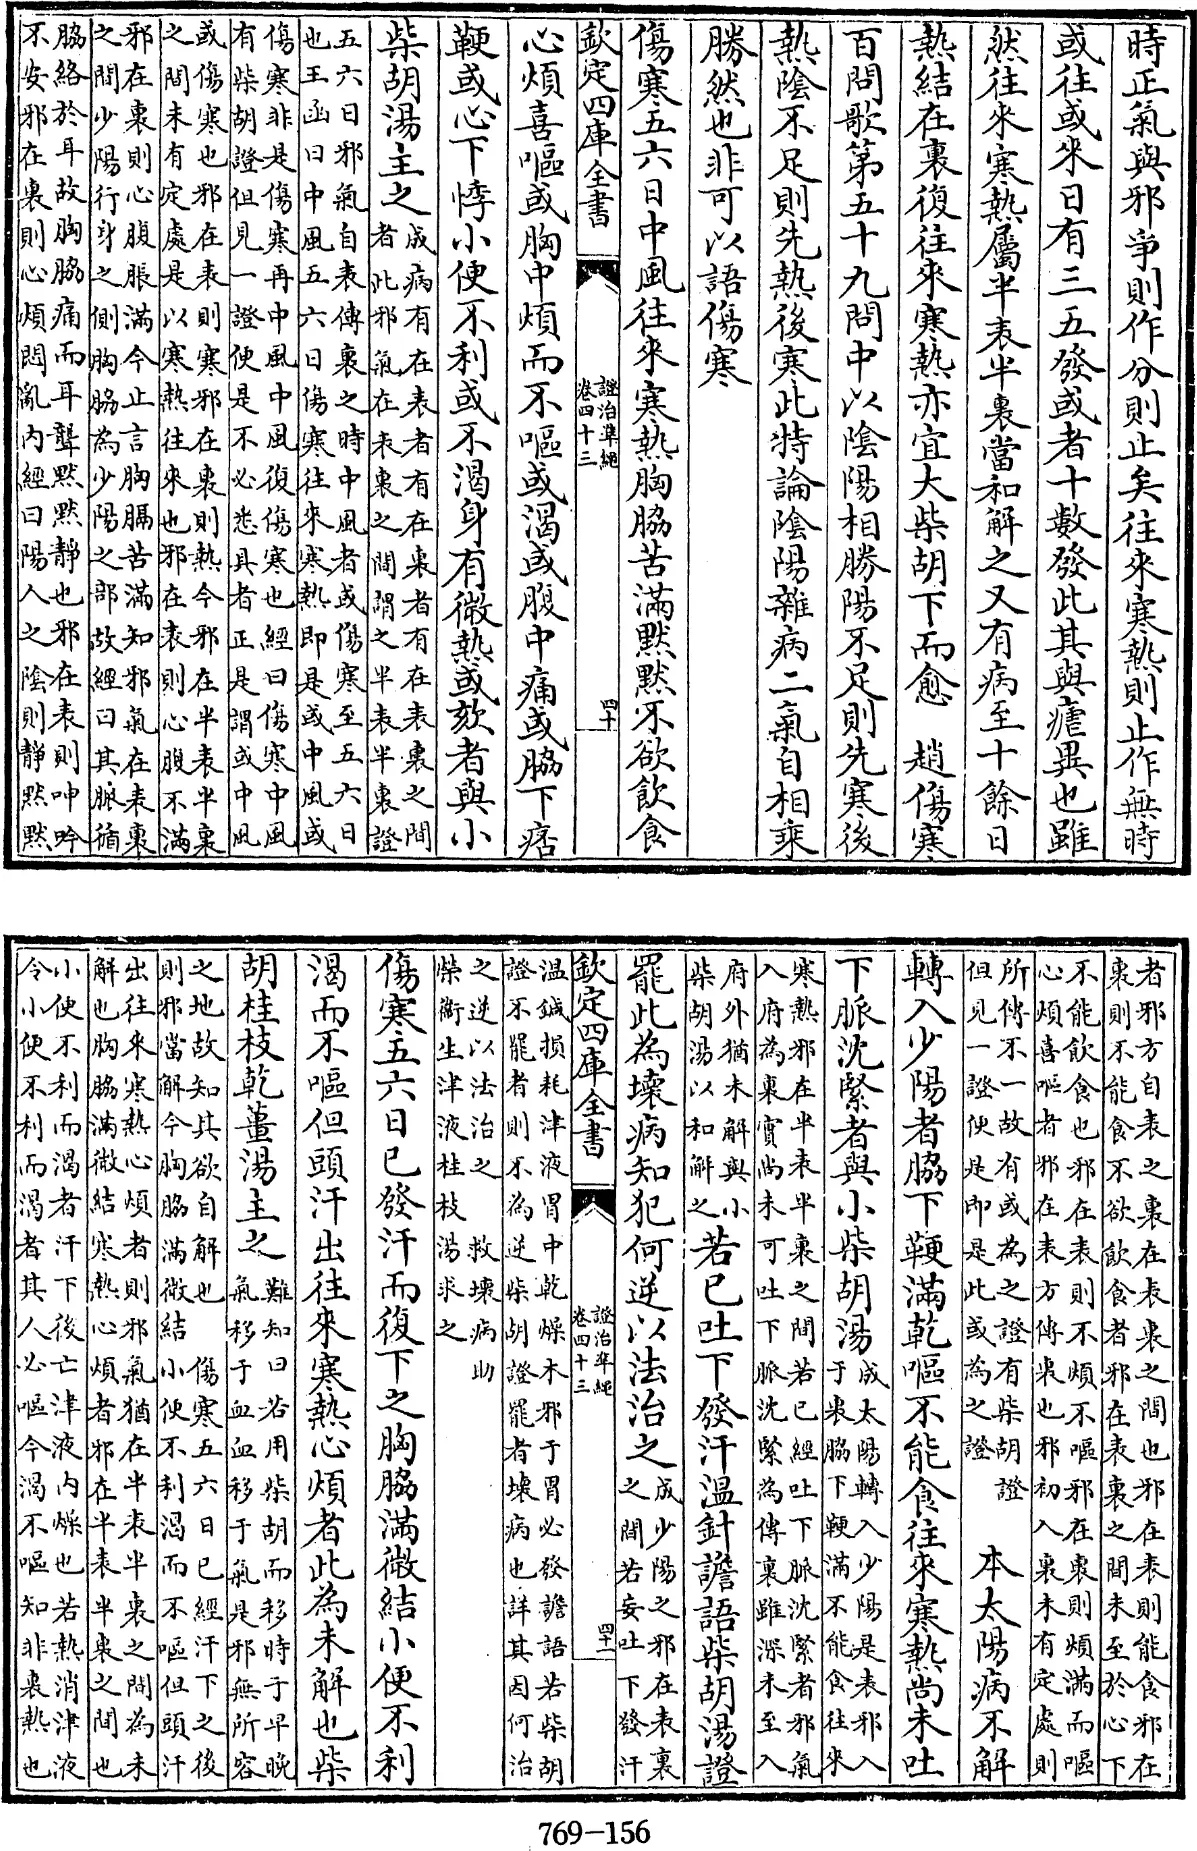 時正氣與邪爭則作分則止矣往來寒熱則止作無時
或往或來日有三五發或者十數發此其與瘧異也雖
然往來寒熱屬半表半裏當和解之又有病至十餘日
熱結在裏復往來寒熱亦宜大柴胡下而愈　趙傷寒
百問歌第五十九問中以陰陽相勝陽不足則先寒後
熱陰不足則先熱後寒此特論陰陽雜病二氣自相乘
勝然也非可以語傷寒
傷寒五六日中風往來寒熱胸脇苦滿默默不欲飲食
欽定四庫全書
證治準繩
卷四十三
四十
心煩喜嘔或胸中煩而不嘔或渴或腹中痛或脇下痞
鞕或心下悸小便不利或不渴身有微熱或欬者與小
柴胡湯主之
成病有在表者有在裏者有在表裏之間
者此邪氣在表裏之間謂之半表半裏證
五六日邪氣自表傳裏之時中風者或傷寒至五六日
也王函曰中風五六日傷寒往來寒熱即是或中風或
傷寒非是傷寒再中風中風復傷寒也經曰傷寒中風
有柴胡證但見一證便是不必悉具者正是謂或中風
或傷寒也邪在表則寒邪在裏則熱今邪在半表半裏
之間未有定處是以寒熱往來也邪在表則心腹不滿
邪在裏則心腹脹滿今止言胸膈苦滿知邪氣在表裏
之間少陽行身之側胸脇為少陽之部故經曰其脈循
脇絡於耳故胸脇痛而耳聾默默靜也邪在表則呻吟
不安邪在裏則心煩悶亂內經曰陽人之陰則靜默默
者邪方自表之裏在表裏之間也邪在表則能食邪在
裏則不能食不欲飲食者邪在表裏之間未至於心下
不能飲食也邪在表則不煩不嘔邪在裏則煩滿而嘔
心煩喜嘔者邪在表方傳裏也邪初入裏未有定處則
所傳不一故有或為之證有柴胡證
但見一證便是即是此或為之證
本太陽病不解
轉入少陽者脇下鞕滿乾嘔不能食往來寒熱尚未吐
下脈沈緊者與小柴胡湯
成太陽轉入少陽是表邪入
于裏脇下鞕滿不能食往來
寒熱邪在半表半裏之間若已經吐下脈沈緊者邪氣
入府為裏實尚未可吐下脈沈緊為傳裏雖深未至入
府外猶未解與小
柴胡湯以和解之
若已吐下發汗溫針譫語柴胡湯證
罷此為壞病知犯何逆以法治之
成少陽之邪在表裏
之間若妄吐下發汗
欽定四庫全書
證治準繩
卷四十三
四十一
溫鍼損耗津液胃中乾燥木邪于胃必發譫語若柴胡
證不罷者則不為逆柴胡證罷者壞病也詳其因何治
之逆以法治之　救壞病助
榮衞生津液桂枝湯求之
傷寒五六日已發汗而復下之胸脇滿微結小便不利
渴而不嘔但頭汗出往來寒熱心煩者此為未解也柴
胡桂枝乾薑湯主之
難知曰若用柴胡而移時于早晚
氣移于血血移于氣是邪無所容
之地故知其欲自解也　傷寒五六日已經汗下之後
則邪當解今胸脇滿微結小便不利渴而不嘔但頭汗
出往來寒熱心煩者則邪氣猶在半表半裏之間為未
解也胸脇滿微結寒熱心煩者邪在半表半裏之間也
小便不利而渴者汗下後亡津液內燥也若熱消津液
令小便不利而渴者其人必嘔今渴不嘔知非裏熱也
769-156